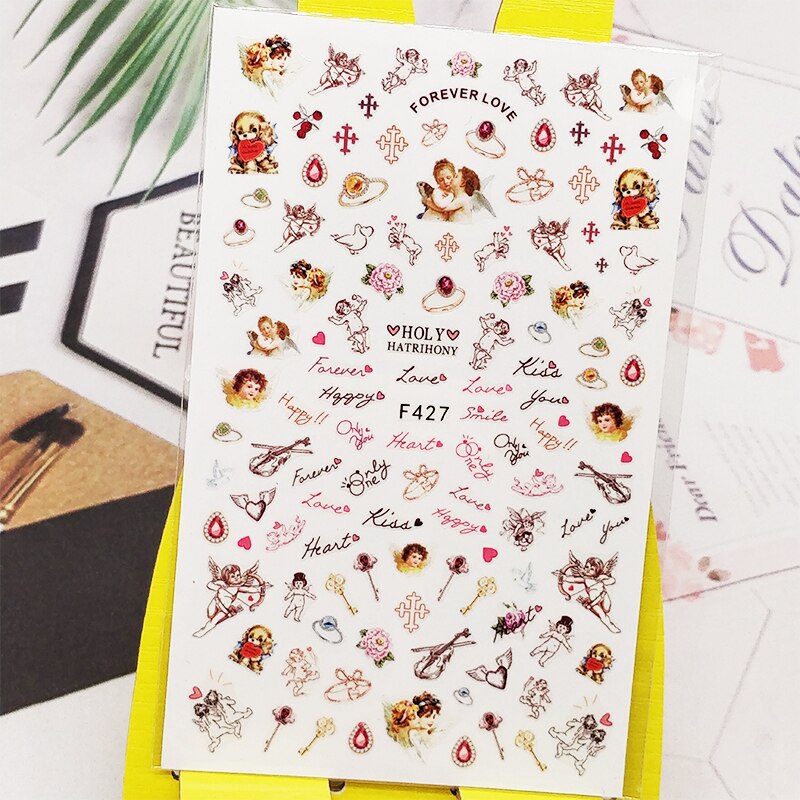 FOREVER LOVE
♥HOLY♥
HATRIHONY
Forever
Love
Love
Kiss
Happy
You
Happy!!
F427
Smile
Happy!!
Only You
Heart
Only You
Forever
Only One
Only One
Love
Love
Kiss
Happy
Love
You
Heart
Heart
BEAUTIFUL
Paris